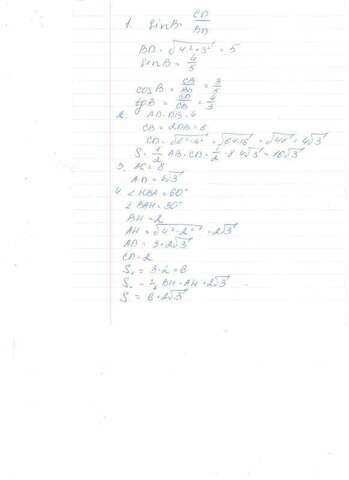 1. sinB = CD/BD
BD = √4²+3² = 5
sinB = 4/5
cosB = CB/BD = 3/5
tgB = CD/CB = 4/3
2. AD=DB=4
CB = 2DB = 8
S = 1/2 AB·CD = 1/2 · 8 · 4√3 = 16√3
3. AC = 8
4. ∠HBA = 60°
∠BAH = 30°
BH = 2
AH = √4²-2² = 2√3
CD = 2
S₁ = 3·2 = 6
BH · AH = 2√3
S = 6+2√3